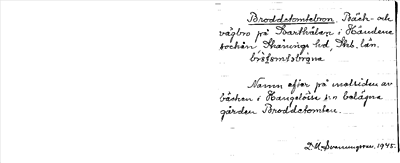 Broddetomtebron. Bäck- och
vägbro på Barthälan i Händene
socken Skånings hd, Skb. län.
Namn efter på motsiden av
bäcken i Hangelösa sn belägna
gården Broddetomten.
D. A. Svenningsson. 1945.